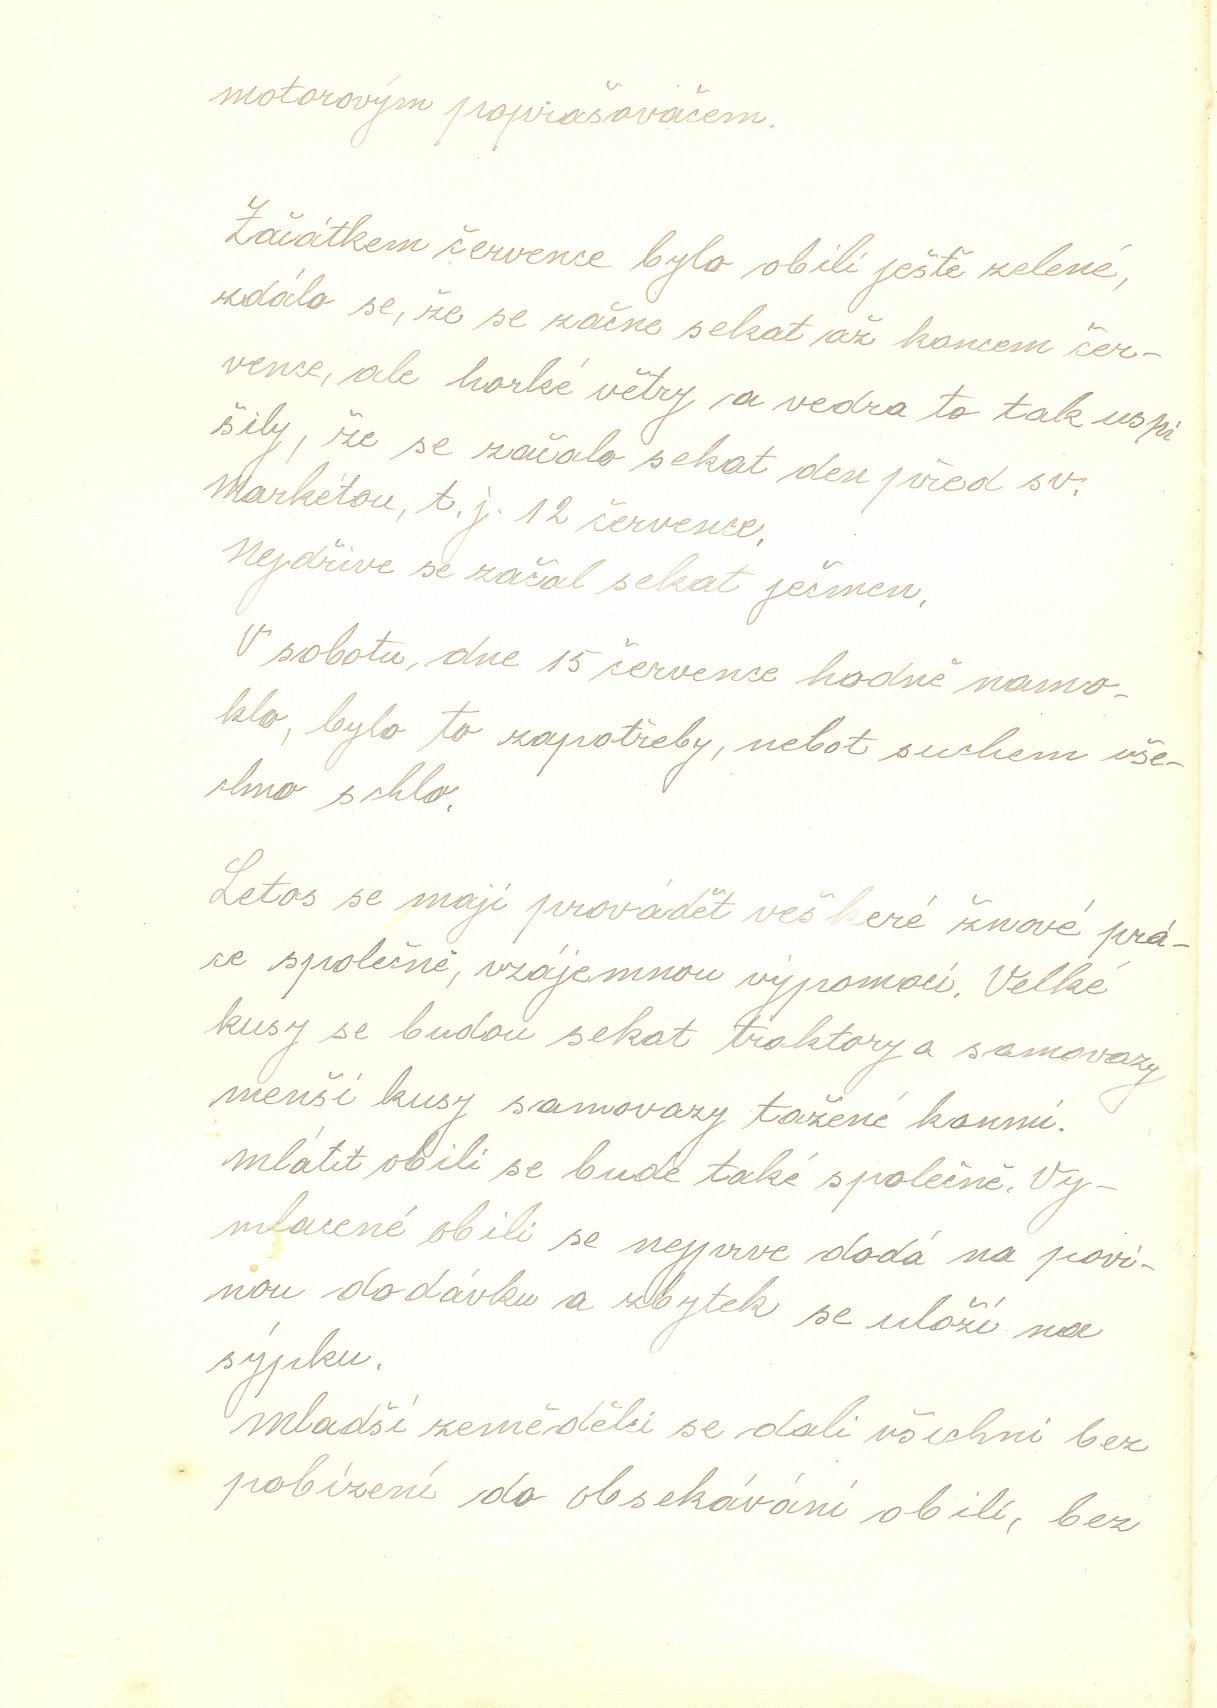 motorovým poprašovačem.
Začátkem července bylo obilí ještě zelené,
zdálo se, že se začne sekat až koncem čer-
vence, ale horké větry a vedra to tak uspí
šily, že se začalo sekat den před sv.
Markétou, t. j. 12 července.
Nejdříve se začal sekat ječmen.
V sobotu, dne 15 července hodně namo-
klo, bylo to zapotřeby, nebot suchem vše-
chno schlo.
Letos se mají provádět veškeré žnové prá-
ce společně, vzájemnou výpomocí. Velké
kusy se budou sekat traktory a samovazy
menší kusy samovazy tažené konmi.
Mlátit obilí se bude také společně. Vy-
mlacené obilí se nejprve dodá na povi-
nou dodávku a zbytek se uloží na
sýpku.
Mladší zemědělci se dali všichni bez
pobízení do obsekávání obilí, bez